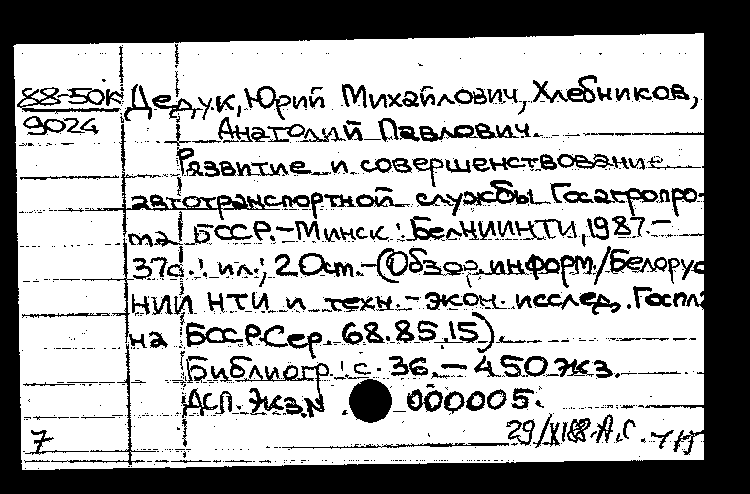 88-50к Дедук, Юрий Михайлович, Хлебников,
9024 Анатолий Павлович.
Развитие и совершенствование
автотранспортной службы Госагропро-
ма БССР. - Минск: БелНИИНТИ, 1987. -
37с.: ил.; 20см. - (Обзор. информ./Белорус
НИИ НТИ и техн. - экон. исслед. Госпла
на БССР. Сер. 68.85.15).
Библиогр.: с. 36. - 450 экз.
ДСП. Экз. N 000005.
7 29/XI88. А.С.